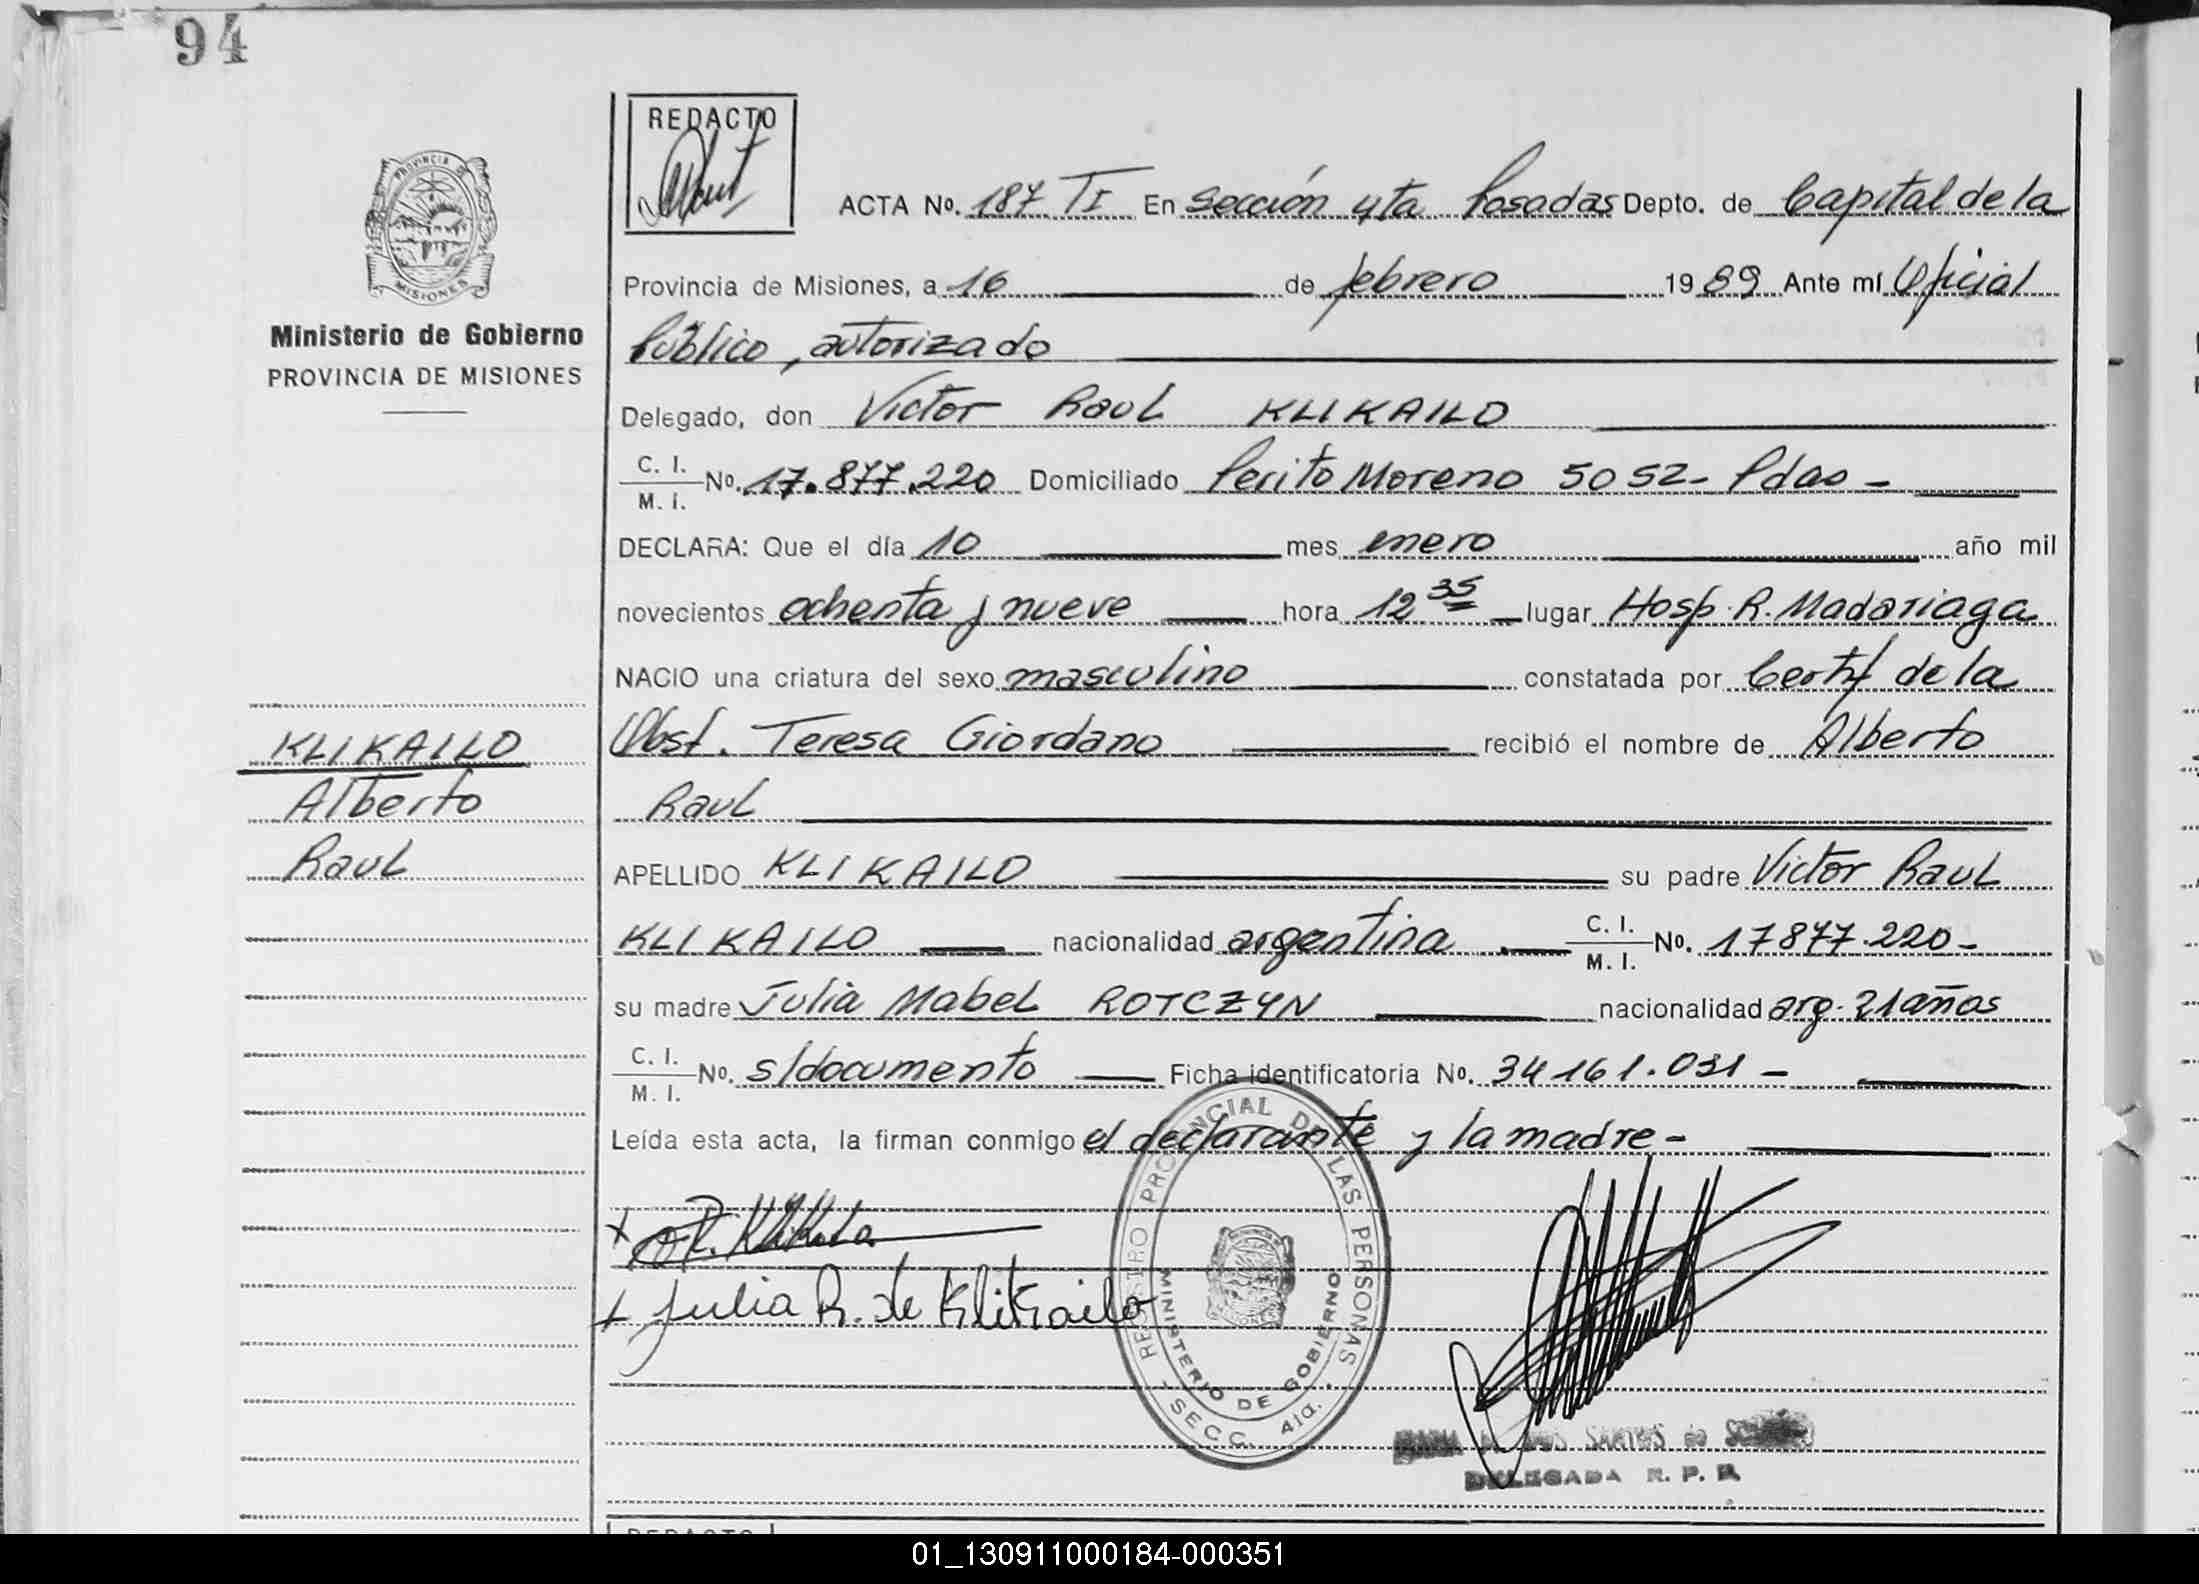 94
REDACTO
ACTA No. 187 TI En sección 4ta Posadas Depto. de Capital de la
PROVINCIA DE
MISIONES
Provincia de Misiones, a 16 de febrero 1989 Ante mí Oficial
Ministerio de Gobierno
Público, autorizado
PROVINCIA DE MISIONES
Delegado, don Victor Raul KLIKAILO
C. I.
M. I. No. 17.877.220 Domiciliado Perito Moreno 5052- Pdas -
DECLARA: Que el día 10 mes enero año mil
novecientos ochenta y nueve hora 12 35 lugar Hosp. R. Madariaga
NACIO una criatura del sexo masculino constatada por Certif de la
Obst. Teresa Giordano recibió el nombre de Alberto
KLIKAILO
Alberto
Raul
Raul
APELLIDO KLIKAILO su padre Victor Raul
KLIKAILO nacionalidad argentina C. I.
M. I. No. 17877.220-
su madre Julia Mabel ROTCZYN nacionalidad arg. 21 años
C. I.
M. I. No. s/documento Ficha identificatoria No. 34161.031 -
Leída esta acta, la firman conmigo el declarante y la madre-
x R. Klikailo
x Julia R. de Klikailo
REGISTRO PROVINCIAL DE LAS PERSONAS
MINISTERIO DE GOBIERNO
SECC. 4ta.
SANTOS de
DELEGADA R. P. P.
REDACTO
01_130911000184-000351